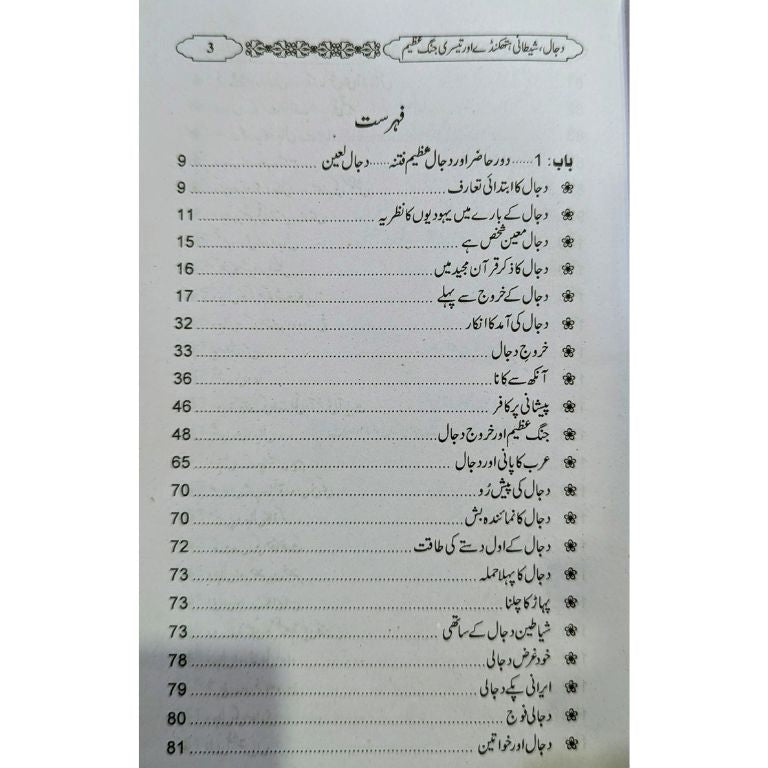 دجال، شیطانی ہتھکنڈے اور تیسری جنگ عظیم 3
فہرست
باب: 1 ...... دور حاضر اور دجال عظیم فتنہ ...... دجال لعین 9
دجال کا ابتدائی تعارف 9
دجال کے بارے میں یہودیوں کا نظریہ 11
دجال معین شخص ہے 15
دجال کا ذکر قرآن مجید میں 16
دجال کے خروج سے پہلے 17
دجال کی آمد کا انکار 32
خروج دجال 33
آنکھ سے کانا 36
پیشانی پر کافر 46
جنگ عظیم اور خروج دجال 48
عرب کا پانی اور دجال 65
دجال کی پیش رُو 70
دجال کا نمائندہ بش 70
دجال کے اول دستے کی طاقت 72
دجال کا پہلا حملہ 73
پہاڑ کا چلنا 73
شیاطین دجال کے ساتھی 73
خود غرض دجالی 78
ایرانی پکے دجالی 79
دجالی فوج 80
دجال اور خواتین 81